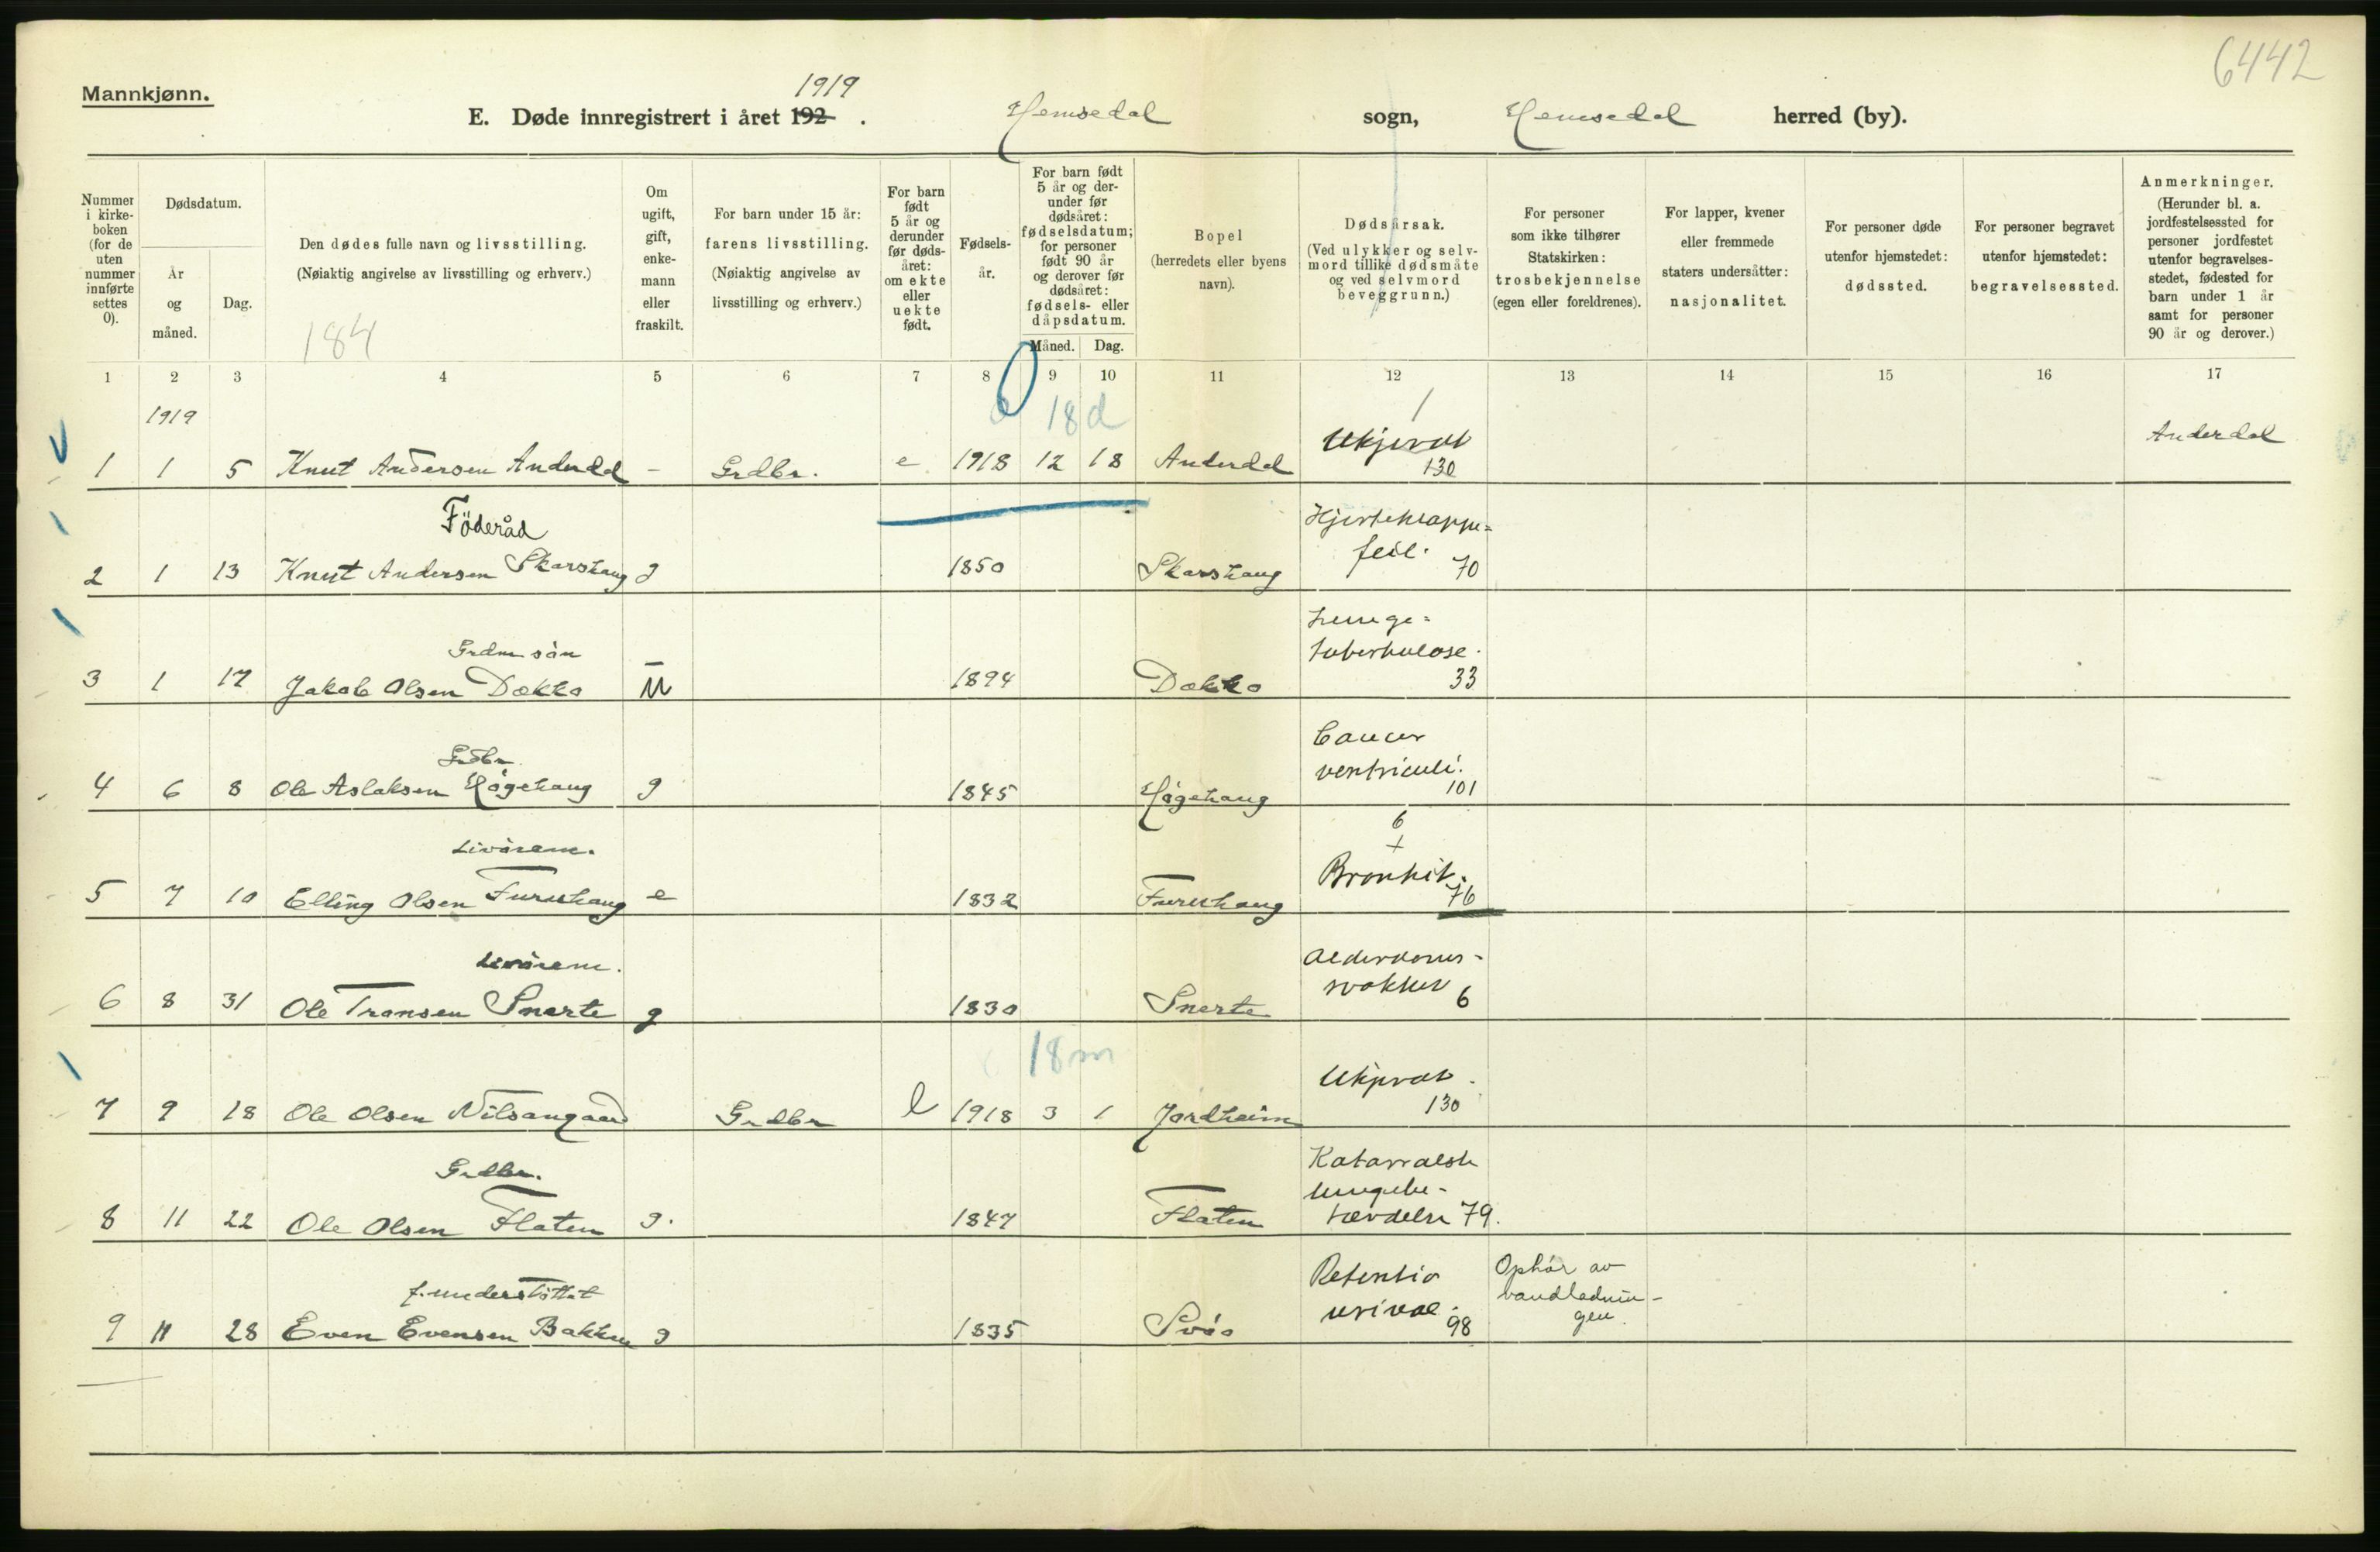 6442
Mannkjønn.
1919
E. Døde innregistrert i året 192 . Hemsedal sogn, Hemsedal herred (by).
Nummer i kirkeboken (for de uten nummer innførte settes 0).
Dødsdatum.
År og måned.
Dag.
Den dødes fulle navn og livsstilling.
(Nøiaktig angivelse av livsstilling og erhverv.)
184
Om ugift, gift, enkemann eller fraskilt.
For barn under 15 år:
farens livsstilling.
(Nøiaktig angivelse av
livsstilling og erhverv.)
For barn født 5 år og derunder før dødsåret: om ekte eller uekte født.
Fødselsår.
For barn født 5 år og derunder før dødsåret: fødselsdatum; for personer født 90 år og derover før dødsåret: fødsels- eller dåpsdatum.
Måned. Dag.
Bopel
(herredets eller byens
navn).
Dødsårsak.
(Ved ulykker og selvmord tillike dødsmåte og ved selvmord beveggrunn.)
For personer
som ikke tilhører
Statskirken:
trosbekjennelse
(egen eller foreldrenes).
For lapper, kvener
eller fremmede
staters undersåtter:
nasjonalitet.
For personer døde
utenfor hjemstedet:
dødssted.
For personer begravet
utenfor hjemstedet:
begravelsessted.
Anmerkninger.
(Herunder bl. a.
jordfestelsessted for
personer jordfestet
utenfor begravelsesstedet, fødested for
barn under 1 år
samt for personer
90 år og derover.)
1 2 3 4 5 6 7 8 9 10 11 12 13 14 15 16 17
1919 0 18 d 1
1 1 5 Knut Andersen Anderdal - Grdbr. e 1918 12 18 Anderdal Ukjendt 130 Anderdal
Föderåd
2 1 13 Knut Andersen Skarshaug g 1850 Skarshaug Hjerteklappefeil. 70
Grdm sön
3 1 17 Jakob Olsen Dokko U 1894 Dokko Lungetuberkulose. 33
Grdbr
4 6 8 Ole Aslaksen Högehaug g 1845 Högehaug Cancer ventriculi. 101
Livörem.
5 7 10 Elling Olsen Furuhaug e 1832 Furuhaug 6 + Bronkit. 76
Livörem.
6 8 31 Ole Transen Snerte g 1830 Snerte Alderdomssvakhet 6
18 m
7 9 18 Ole Olsen Nilsangaard Grdbr 1918 3 1 Jordheim Ukjendt. 130
Grdbr.
8 11 22 Ole Olsen Flaten g. 1847 Flaten Katarralsk lungebetændelse 79.
f. understöttet
9 11 28 Even Evensen Bakken g 1835 Svöo Retentio urinae. 98 Ophör av vandladningen.